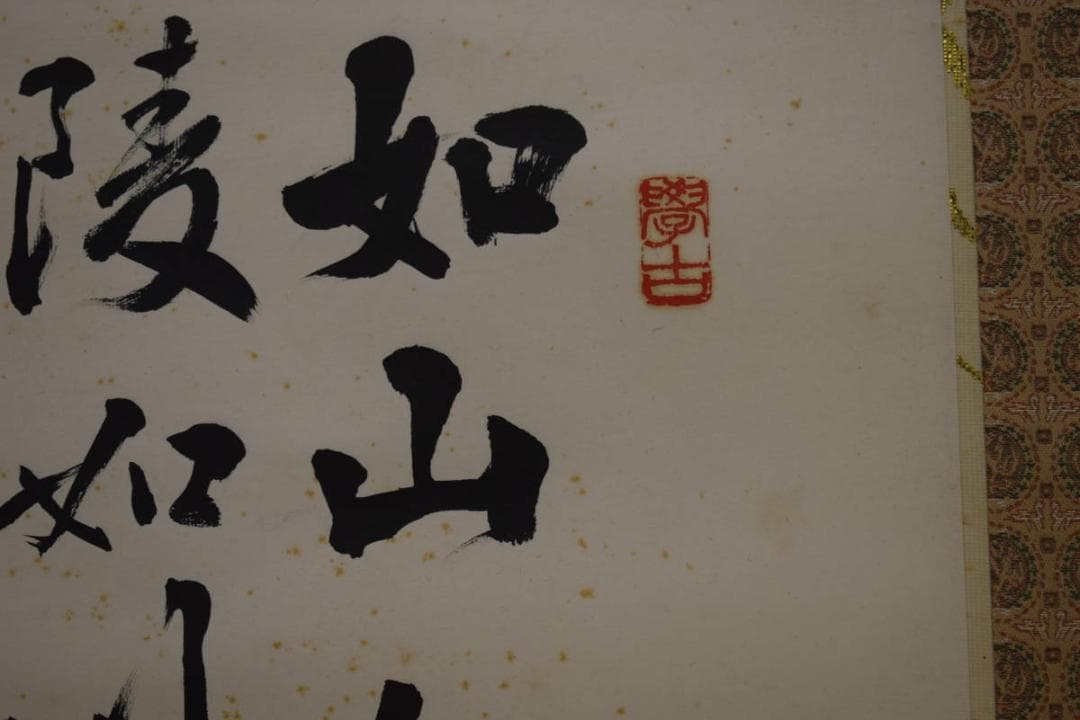 學古
如山
陵如